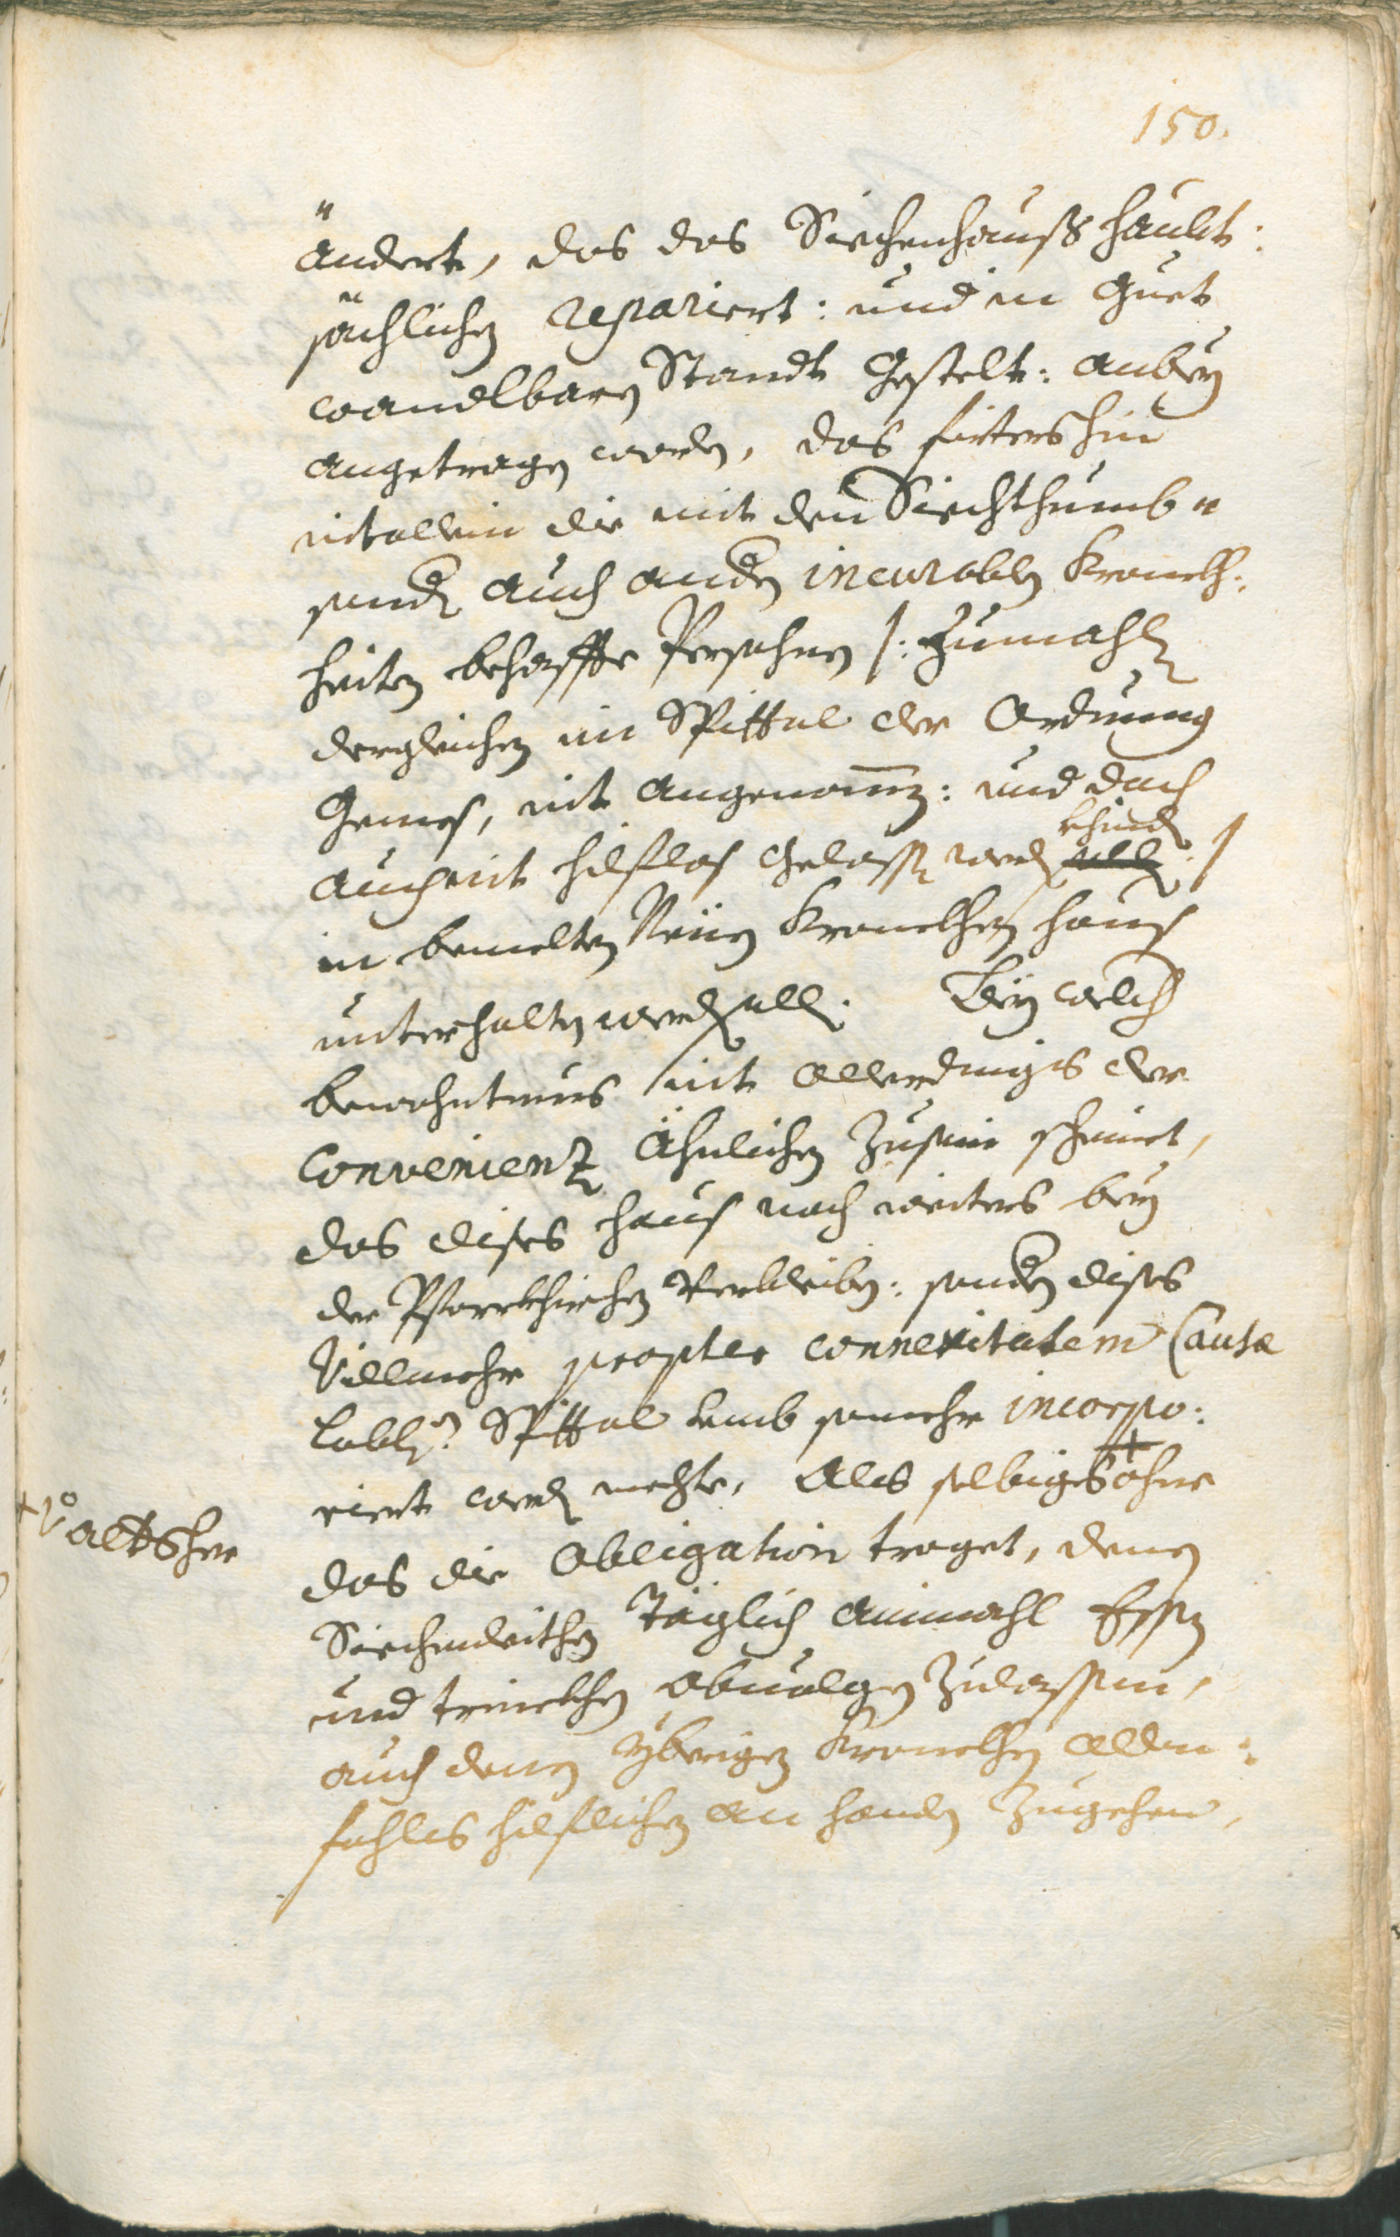 150.
ändert, das das Siechenhauß haubt:
sächlichen repariert: und in Guet
wandlbaren Standt Gestelt: anbey
angetragen worden, das firters hin
nit allein die mit den Siechthumb
sondern auch andern incurablen Kranckh:
heiten behaffte Persohnen /: Zumahlen
dergleichen im Spittal der Ordnung
Gemes, nit angenommen: und doch
khinden
auch nit hilflos Gelassen werden sollen :/
in bemelten Neuen Kranckhen haus
unterhalten werden sollen. Bey welch
bewohntnus nit allerdings der
Convenienz ähnlichen Zusein scheinet,
das dises haus noch weiters bey
der Pfarrkhirchen Verbleiben: sondern dises
Villmehr propter connexitatem Causæ
Lobl: Spittal umb somehr incorpo:
riert werden mechte, als selbiges + ohne
+ V° alters her
das die Obligation traget, denen
Siechenleithen Täglich ainmahl Essen
und trinckhen abuolgen Zulassen,
auch denen yberigen Kranckhen allen:
fahls hilflichen an handen Zugehen,